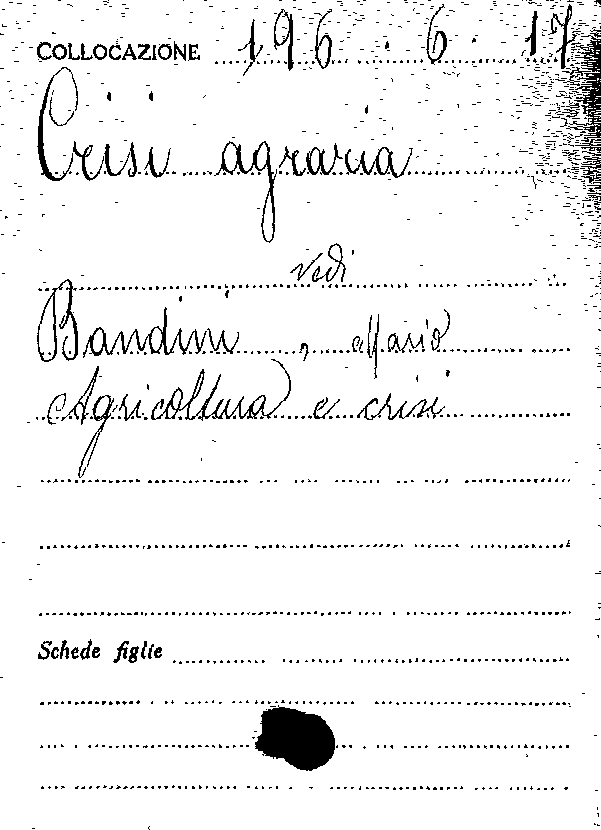 COLLOCAZIONE 196.6.17
Crisi agraria
vedi
Bandini, Mario
Agricoltura e crisi
Schede figlie